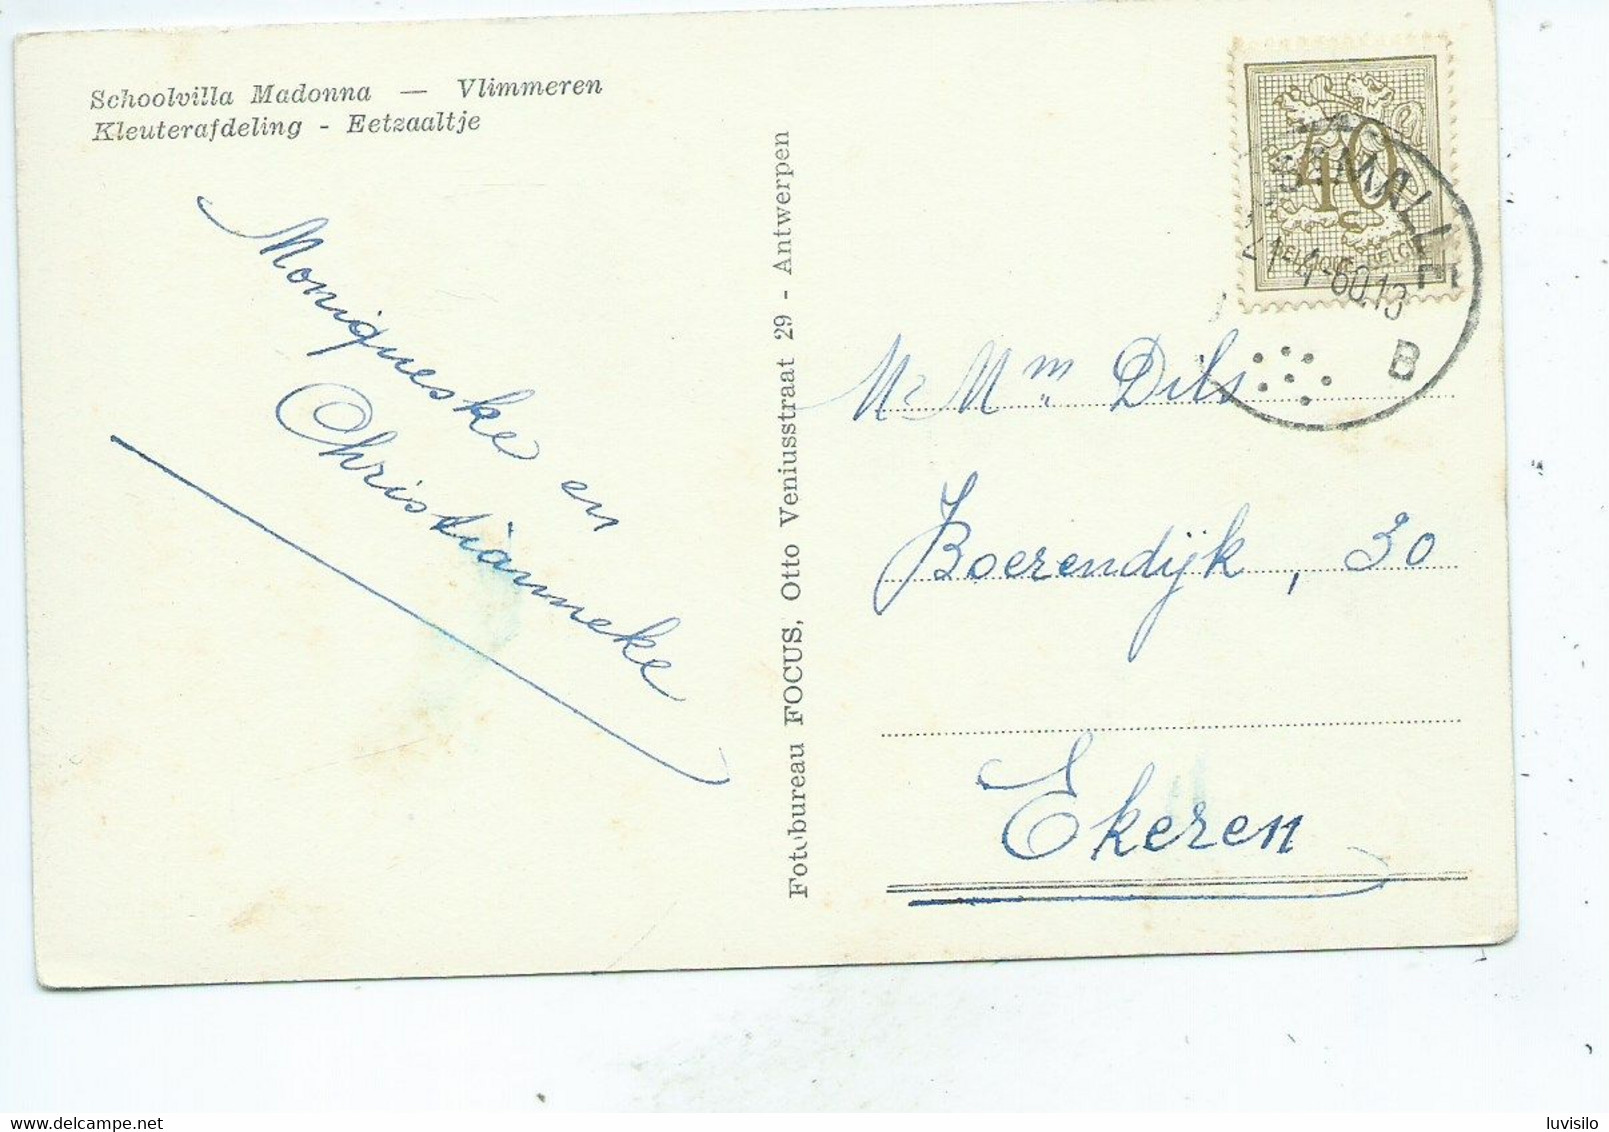 Schoolvilla Madonna — Vlimmeren
Kleuterafdeling - Eetzaaltje
Moniqueske en
Christianneke
Fotobureau FOCUS, Otto Veniusstraat 29 - Antwerpen
40
BELGIQUE BELGIE
-1-60.13
B
Mr Mm Dils
Boerendijk, 30
Ekeren
luvisilo